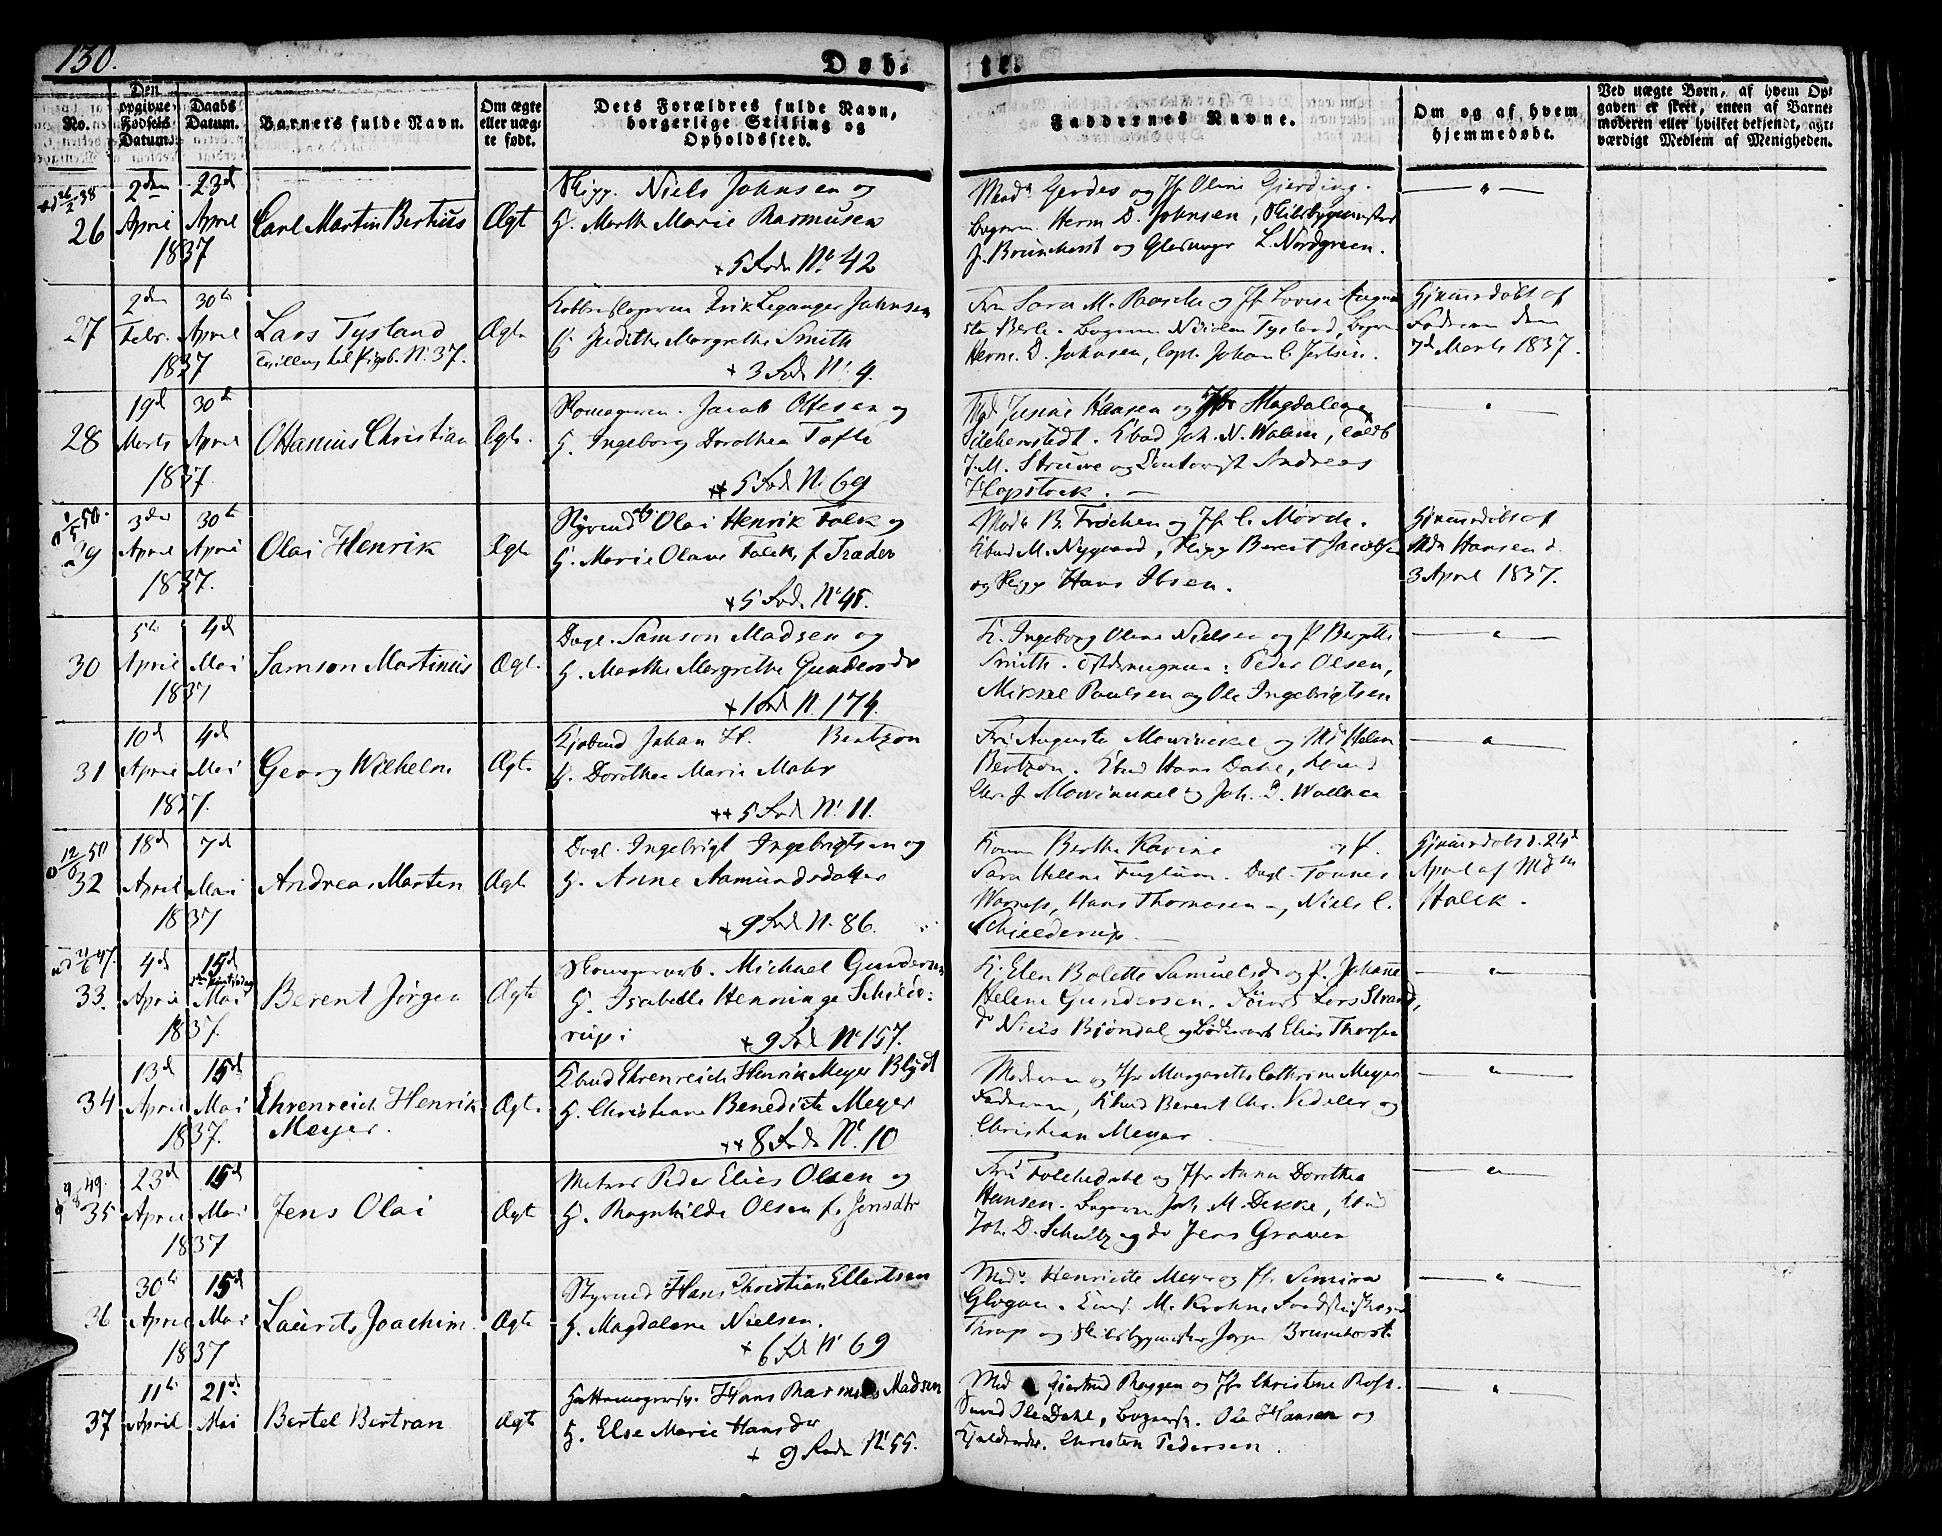 130.
Døb-
te.
No.
Den opgivne Fødsels Datum.
Daabs Datum.
Barnets fulde Navn.
Om ægte eller uægte født.
Dets Forældres fulde Navn, borgerlige Stilling og Opholdssted.
Faddernes Navne.
Om og af hvem hjemmedøbt.
Ved uægte Børn, af hvem Opgaven er skeet, enten af Barnemoderen eller hvilket bekjendt, agtværdigt Medlem af Menigheden.
26
2den April 1837
23d April
Carl Martin Bertius
Ægt
Skipp. Niels Johnsen og
H. Marthe Marie Rasmusen
+ 5 Fode No. 42
Mad. Gerdes og Jfr Oline Gjerding.
Herm D. Johnsen, Skibsbygmester
J. Brunchorst og L. Nordgreen.
27
2den Febr. 1837
30te April
Lars Tysland
Tvilling til Pigeb. No. 37.
Ægte
Erik Leganger Johnsen
H. Judithe Margrethe Smith
+ 3 Fode No. 4.
Fru Sara M. Rasch og Jfr Lovise Augu
sta Berle. Tysland,
Herm. D. Johnsen, Capt. Johan C. Jertsen.
Hjemmedøbt af
Faderen den
7d Marts 1837.
28
19d Marts 1837
30te April
Ottanius Christian
Ægte.
Skomagersv. Jacob Ottesen og
H. Ingeborg Dorothea Tofte
++ 5 Fode N. 69
Mad Hansen og Jfr Magdalene
Joh. N. Walem,
J. M. Struwe og Andreas
Klopstock.
1/5 50.
29
3den April 1837.
30te April
Olai Henrik
Ægte
Styrmd Olai Henrik Falck og
H. Marie Olave Falck, f. Træder
+ 5 Fode No 45.
Made B. Frøchen og Jfr C. Mørch.
Kbmd M. Nygaard, Skipp Berent Jacobsen
og Skipp Hans Ibsen.
Hjemmedøbt af
Mdm Hansen d.
3 April 1837.
30
5te April 1837
4d Mai
Samson Martinus
Ægte.
Dagl. Samson Madsen og
H. Marthe Margrethe Gundersdr
+ 1 Fode N. 174.
K. Ingeborg Oline Nielsen og P. Bergitte
Smith. Peder Olsen,
Mikkel Paulsen og Ole Ingebrigtsen
31
10d April 1837.
4d Mai
Georg Wilhelm
Ægte
Kjøbmd Johan H. Bentzon
H. Dorothea Marie Mohr
++ 5 Fode No. 11.
Fru Augusta Mowinckel og Md Helen
Bentzon. Kbmd Hans Dahl, Kbmd
Chr. J. Mowinckel og Joh. D. Wallace
12/6 50
32
18d April 1837
7d Mai
Andreas Marten
Ægte
Dagl. Ingebrigt Ingebrigtsen og
H. Anne Aamundsdatter
+ 9 Fode N. 86.
Konen Berthe Karine og P.
Sara Helene Fuglum. Dagl. Tønnes
Hans Thomasen, Niels C.
Schjelderup.
Hjemmedøbt d. 24d
April af Mdm
Holck.
33.
4d April 1837.
15d Mai
Berent Jørgen
Ægte
Skomagerarb. Michael Gundersen
H. Isabella Henninge Schield:
rup:
+ 9 Fode No 157.
K. Elen Bolette Samuelsdr og P. Johanne
Helene Gundersen. Lars Strand,
do Niels Bjøndal og Bødkersvend Elias Thorsen
34
13d April 1837.
15d Mai
Ehrenreich Henrik
Meyer.
Ægte.
Kbmd Ehrenreich Henrik Meyer Blydt
H. Christiane Benedicte Meyer
++ 8 Fode No. 10
Moderen og Jfr Margarethe Cathrine Meyer
Faderen, Kbmd Berent Chr. Vedeler og
Christian Meyer
9/8 49.
35
23d April 1837
15d Mai
Jens Olai
Ægte
Matros Peder Elias Olsen og
H. Ragnhilde Olsen f. Jensdtr
Fru Follesdahl og Jfr Anna Dorothea
Hansen. Joh. M. Dekke,
Joh. D. Schultz og do Jens Graven
36
30te April 1837
15d Mai
Laurits Joachim.
Ægte
Styrmd Hans Christian Ellertsen
H. Magdalene Nielsen.
+ 6 Fd No 69
Made Henriette Meyer og Jfr Semine
M. Krohn,
Thrap og Skibsbygmester Jørgen Brunchorst.
37
11te April
21de Mai
Bertel Bertran
Ægte
Hans Rasmus Madsen
H. Else Marie Hansdr
+ 9 Fode No 55.
Mad Giertrud Roggen og Jfr Christene Rose.
Ole Dahl, Ole Hansen og
Christen Pedersen.